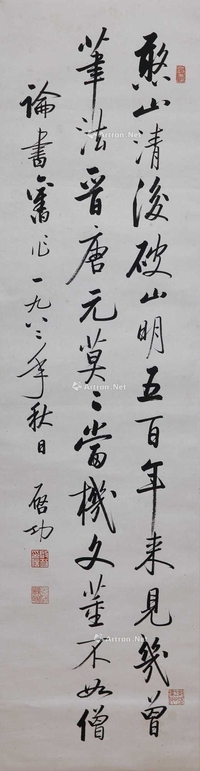 憨山清後破山明五百年来見幾曾
筆法晋唐元莫二當機文董不如僧
論書舊作一九八二年秋日 啓功
Artron.Net
Artron.Net
Artron.Net